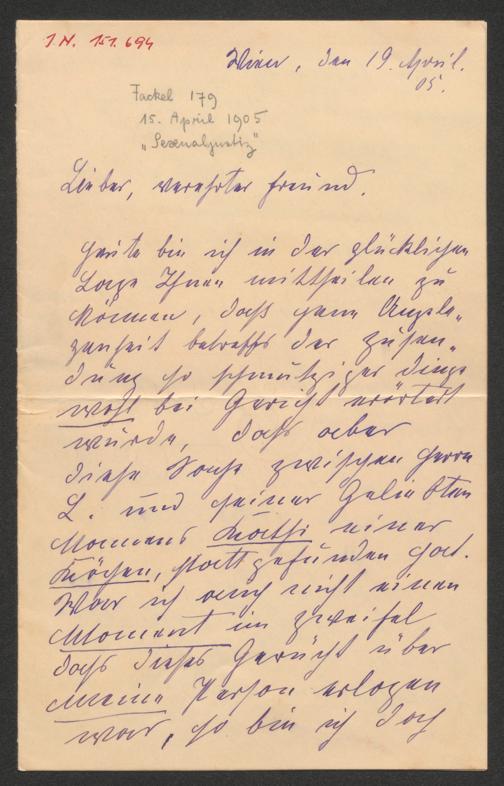 I.N. 151.694
Wien, den 19. April.
05.
Fackel 179
15. April 1905
"Sexualjustiz"
Lieber, verehrter Freund.
heute bin ich in der glücklichen
Lage Ihnen mittheilen zu
können, daß jene Angele„
genheit betreffs der Zusen„
dung so schmutziger Dinge
wohl bei Gericht erörtert
wurde, daß aber
diese Sache zwischen Herrn
L. und seiner Geliebten
Namens Kathi einer
Köchin, stattgefunden hat.
War ich auch nicht einen
Moment im Zweifel
daß dieses Gerücht über
meine Person erlogen
war, so bin ich doch